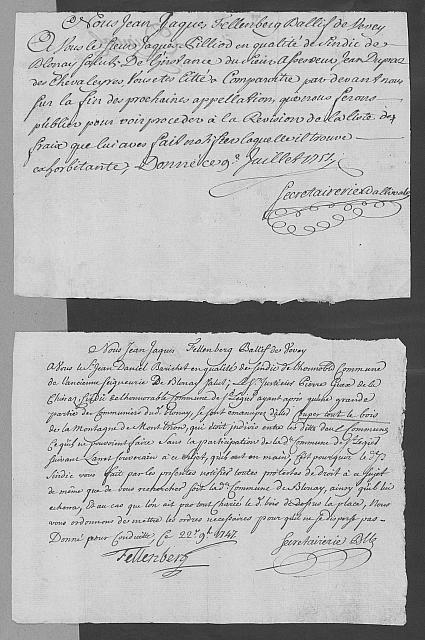 Nous Jean Jaques Fellenberg Ballif de Vevey
A Vous le Sieur Jaques Pilliod en qualité de Sindic de
Blonay Salut; De l'instance du Sieur Assesseur Jean Dupraz
des Chevaleyres, Vous etes Citté a Comparoitre par devant nous
sur la fin des prochaines appellation, que nous ferons
publier pour voir proceder à la Revision de la liste de
fraix que lui avés fait notifier laquelle il trouve
exhorbitante, Donné ce 9e Juillet 1751
Secretairerie Ballivale
Nous Jean Jaques Fellenberg Ballif de Vevey
A Vous le Sr Jean Daniel en qualité de Sindic de l'honnorable Commune
de l'ancienne Seigneurie de Blonay Salut; Le Sr Justicier Pierre de la
Sindic de l'honnorable Commune de St Legier ayant apris qu'une grande
partie des Communiers de Blonay, se sont emancipés de Couper tout le bois
de la Montagne de qui etoit indivis entre les dittes deux Communes
Ce qu'ils ne pouvoient faire Sans la participation de la de Commune de St Legier
suivant L'arret Souverain a ce Sujet, qu'ils ont en main, fait pourquoi le dt Sr
Sindic vous fait par les presentes notifier toutes protestes de droit à ce Sujet
de meme que de vous rechercher soit la de Commune de Blonay, ainsy qu'il lui
echerra, Et au cas que l'on ait pas tout Charié le dt bois de dessus la place, Nous
vous ordonnons de mettre les ordres necessaires pour qu'il ne se disperse pas
Donné pour Conduitte Ce 22e 9bre 1747
Fellenberg Secretairerie Blle